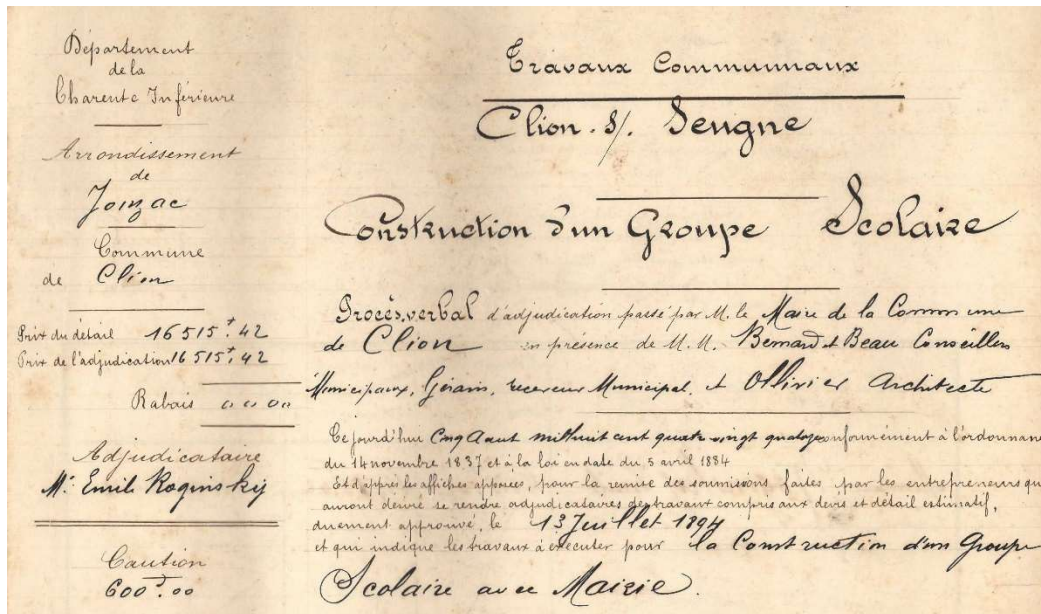 Département
de la
Charente Inférieure
Arrondissement
de
Jonzac
Commune
de Clion
Prix du détail 16515f,42
Prix de l'adjudication 16515f,42
Rabais 0000
Adjudicataire
Mr. Emile Roginsky
Caution
600f.00
Travaux Communnaux
Clion. s/. Seugne
Construction d'un Groupe Scolaire
Procès.verbal d'adjudication passé par M. le Maire de la Commune
de Clion en présence de M.M. Bernard et Beau Conseillers
Municipaux, receveur Municipal, et Ollivier Architecte
Ce jourd'hui Cinq Aout mil huit cent quatre vingt quatorze conformément à l'ordonnance
du 14 novembre 1837 et à la loi en date du 5 avril 1884
Et d'après les affiches apposées, pour la remise des soumissions, faites par les entrepreneurs qui
auront désiré se rendre adjudicataires des travaux compris aux devis et détail estimatif,
duement approuvé, le 13 Juillet 1894
et qui indique les travaux à exécuter pour la Construction d'un Groupe
Scolaire avec Mairie.